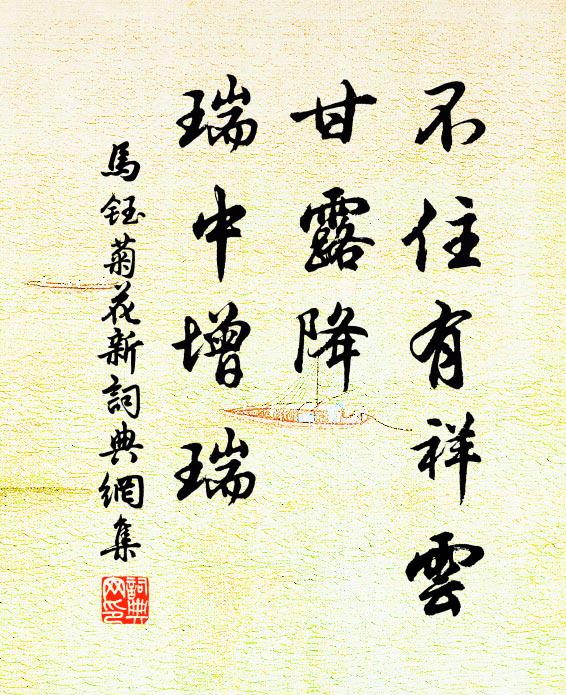 不住有祥雲
甘露降
瑞中增瑞
馬鈺菊花新詞典網集
詞典网印